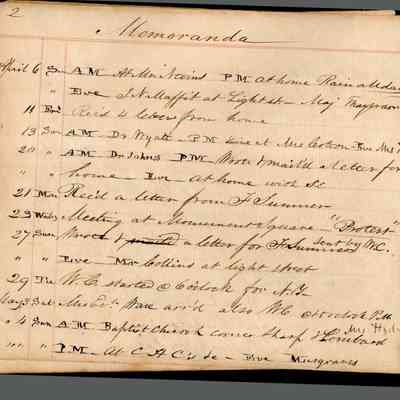 2
Memoranda
April 6 Sun AM At Mr Nevins PM at home Rain all day
" Eve J.N. Maffit at Light st - Maj
11 Rec'd a letter from home
13 Sun AM Dr Wyatt - PM Eve
20 " AM Dr Johns PM Wrote & mail'd a letter for
" " home Eve at home with
21 Mon Rec'd a letter from F Sumner
23 Wedy Meeting at Monument Square "Protest"
27 Sun Wrote & mailed a letter for F Sumner sent by W.C.
" " Eve Mr Collins at light street
29 Tue W.C. started @ 6 oclock for N.Y.
May 3 Sat Ware arr'd also WC oclock P.M
" 4 Sun AM Baptist Church corner Sharp & Lombard
" " " P.M - At C.A.C's &c - Eve Musgraves